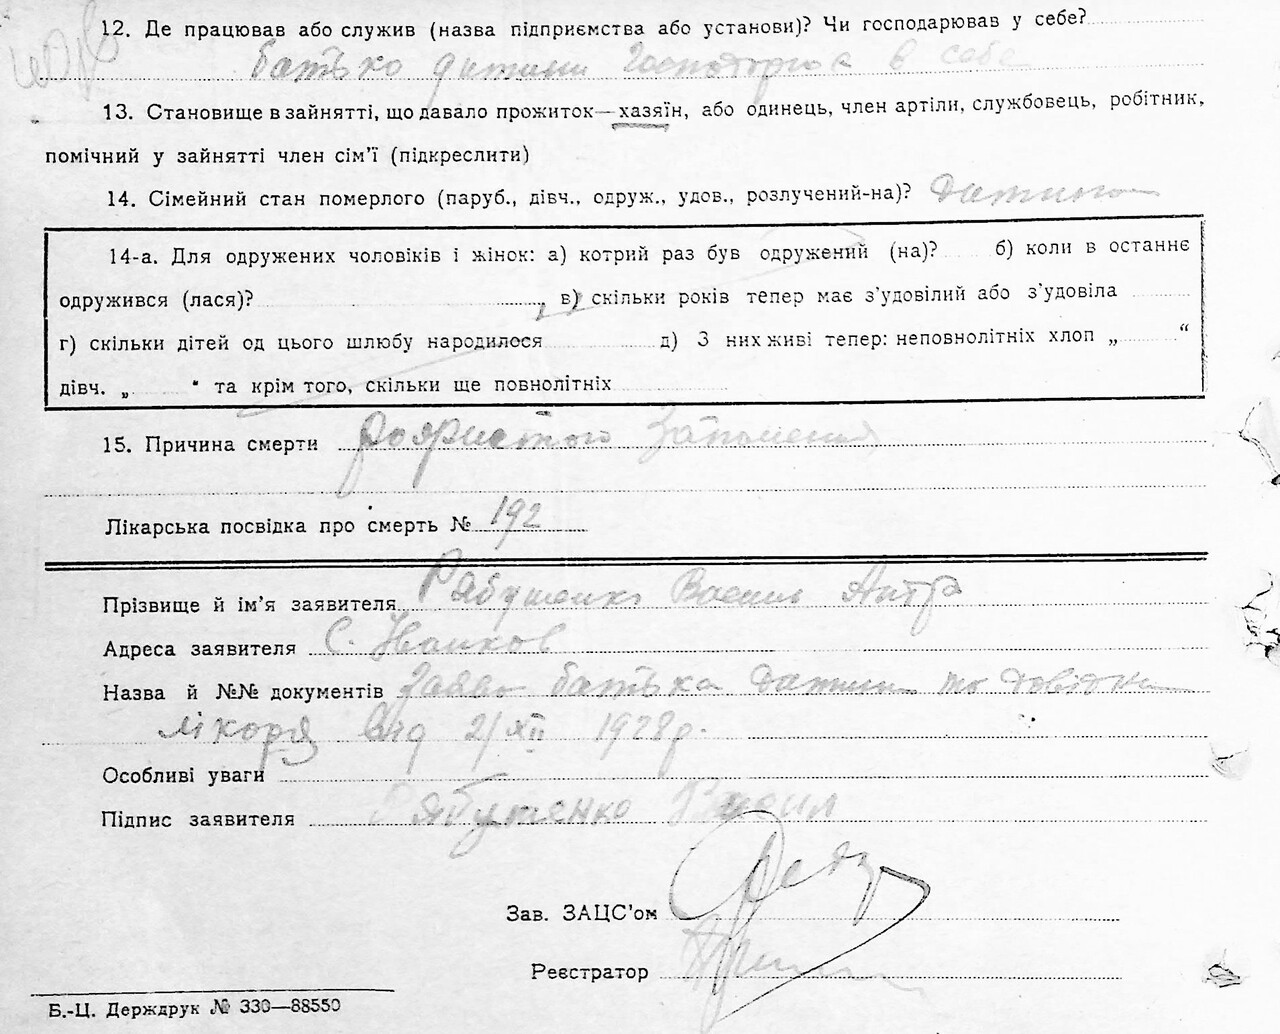 12. Де працював або служив (назва підприємства або установи)? Чи господарював у себе?
батько дитини господорює в себе
13. Становище в зайнятті, що давало прожиток—хазяїн, або одинець, член артіли, службовець, робітник,
помічний у зайнятті член сім’ї (підкреслити)
14. Сімейний стан померлого (паруб., дівч., одруж., удов., розлучений-на)? дитина
14-а. Для одружених чоловіків і жінок: а) котрий раз був одружений (на)? б) коли в останнє
одружився (лася)? в) скільки років тепер має з’удовілий або з’удовіла
г) скільки дітей од цього шлюбу народилося д) З них живі тепер: неповнолітніх хлоп „ “
дівч. „ “ та крім того, скільки ще повнолітніх
15. Причина смерти запалення
Лікарська посвідка про смерть № 192
Прізвище й ім’я заявителя Рябушенко Василь
Адреса заявителя С.
Назва й №№ документів Заява батька дитини та довідка
лікоря від 2/XII 1928р.
Особливі уваги
Підпис заявителя Рябушенко Васил
Зав. ЗАЦС’ом
Реєстратор
Б.-Ц. Держдрук № 330—88550